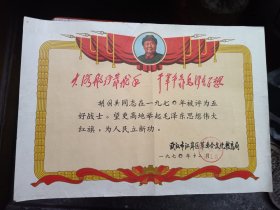 大海航行靠舵手 干革命靠毛泽东思想
胡国兵同志在一九七〇年被评为五
好战士。望更高地举起毛泽东思想伟大
红旗，为人民立新功。
武汉市江岸区革委会文化教育局
一九七〇年十二月